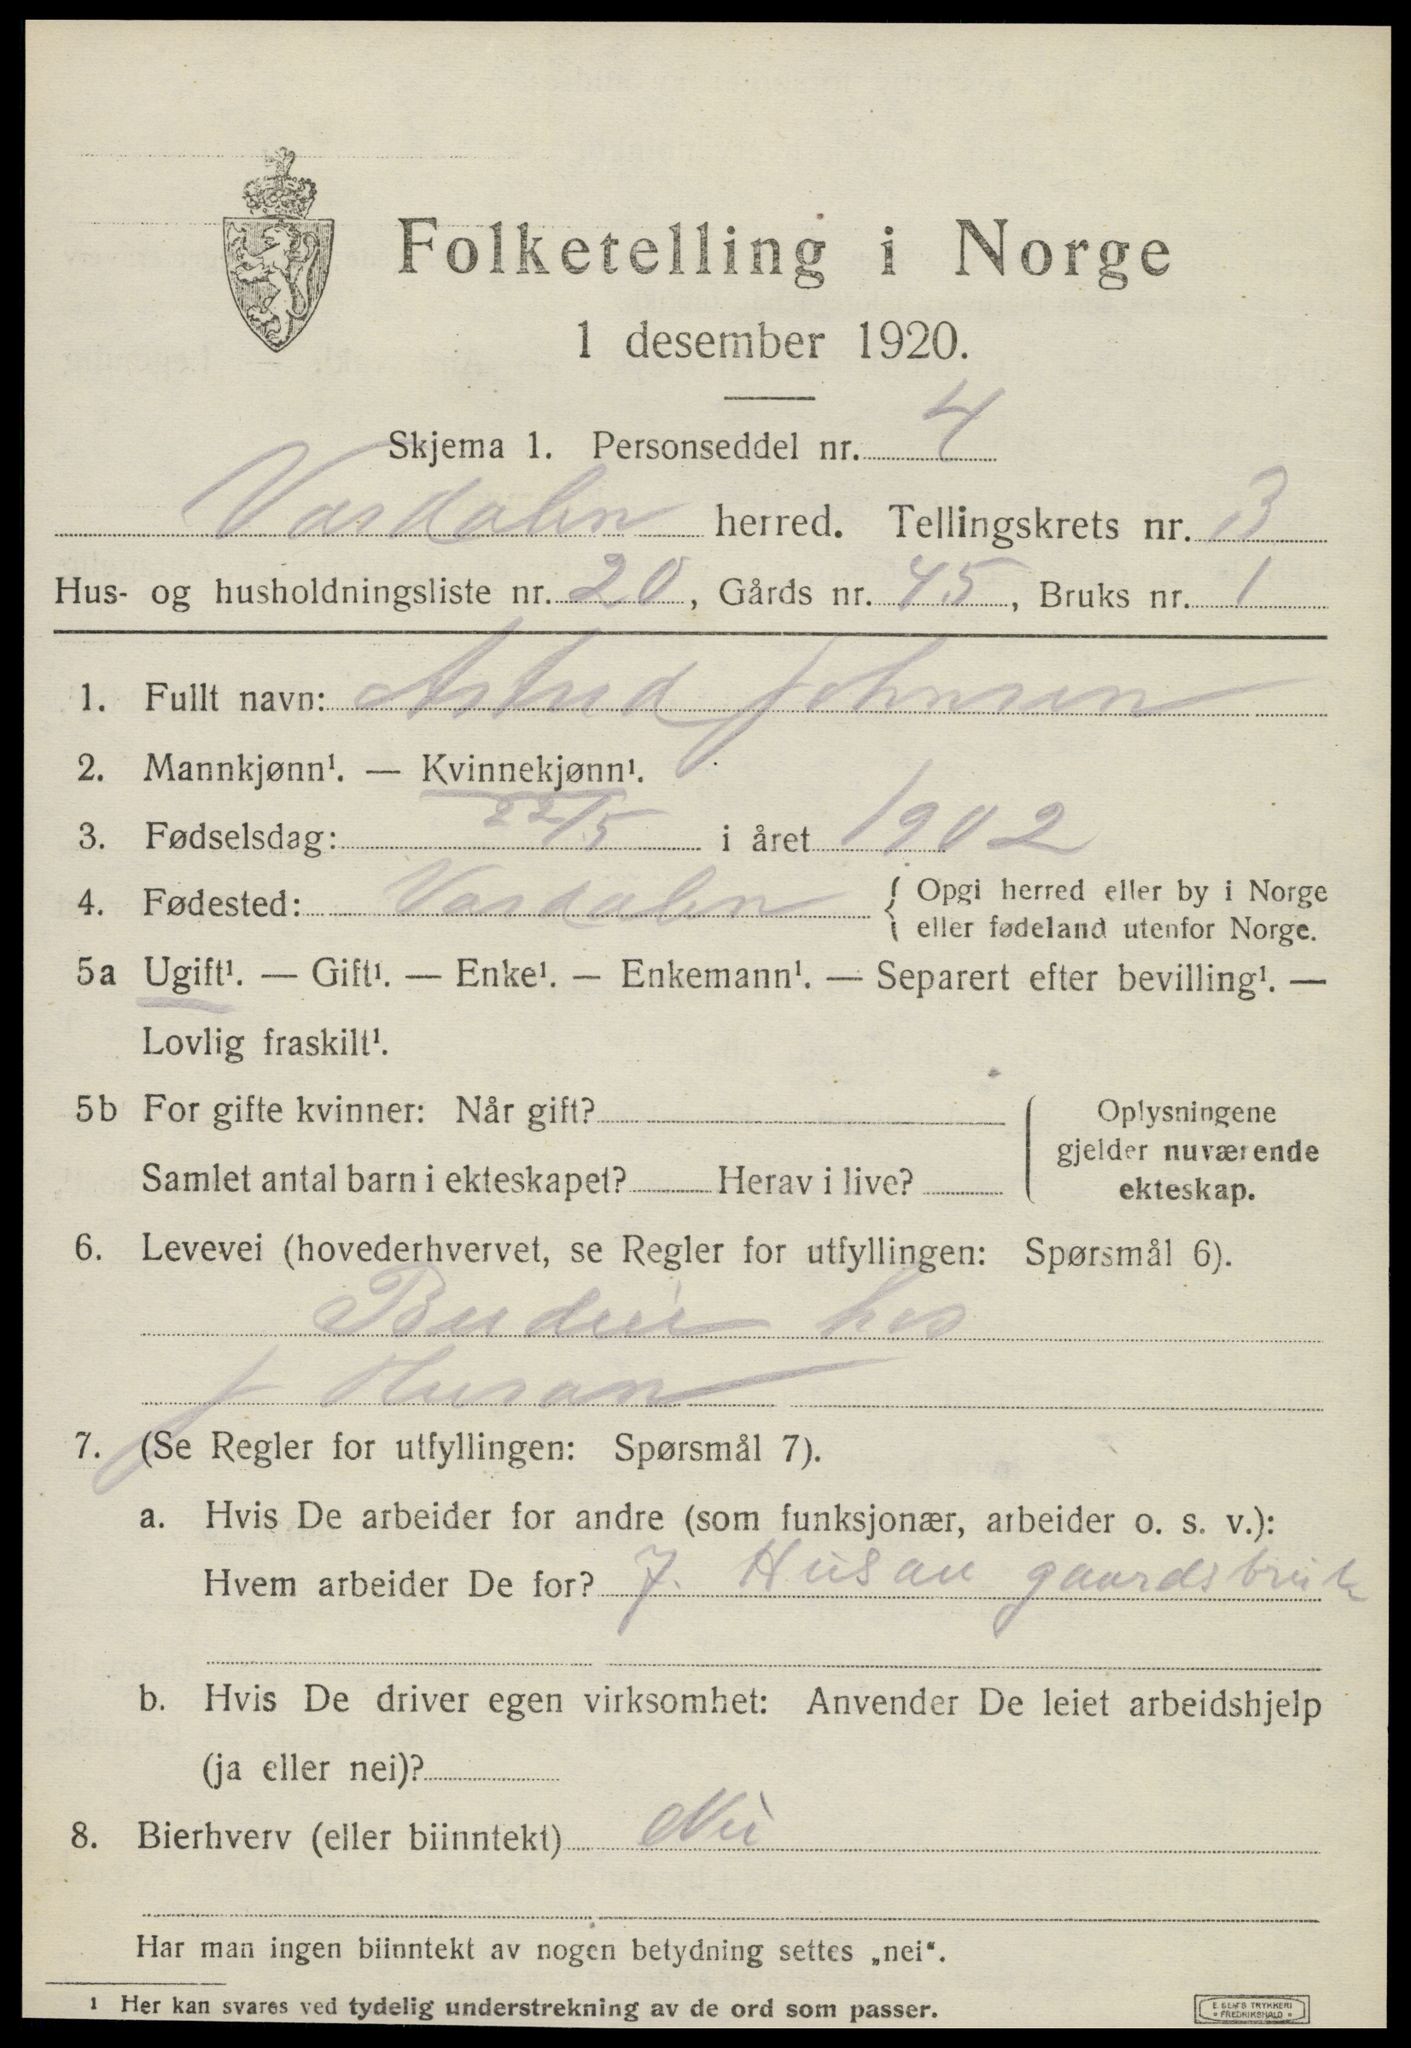 Folketelling i Norge
1 desember 1920.
Skjema 1. Personseddel nr. 4
Værdalen herred. Tellingskrets nr. 3
Hus- og husholdningsliste nr. 20, Gårds nr. 45, Bruks nr. 1
1. Fullt navn: Astrid Johnsen
2. Mannkjønn¹. — Kvinnekjønn¹.
3. Fødselsdag: 22/5 i året 1902
4. Fødested: Værdalen { Opgi herred eller by i Norge
eller fødeland utenfor Norge.
5a Ugift¹. — Gift¹. — Enke¹. — Enkemann¹. — Separert efter bevilling¹. —
Lovlig fraskilt¹.
5b For gifte kvinner: Når gift?
Samlet antal barn i ekteskapet? Herav i live?
Oplysningene
gjelder nuværende
ekteskap.
6. Levevei (hovederhvervet, se Regler for utfyllingen: Spørsmål 6).
Budeie hos
J Husan
7. (Se Regler for utfyllingen: Spørsmål 7).
a. Hvis De arbeider for andre (som funksjonær, arbeider o. s. v.):
Hvem arbeider De for? J. Husan gaardsbruk
b. Hvis De driver egen virksomhet: Anvender De leiet arbeidshjelp
(ja eller nei)?
8. Bierhverv (eller biinntekt) Nei
Har man ingen biinntekt av nogen betydning settes „nei“.
¹ Her kan svares ved tydelig understrekning av de ord som passer.
E. SEMS TRYKKERI
FREDRIKSHALD